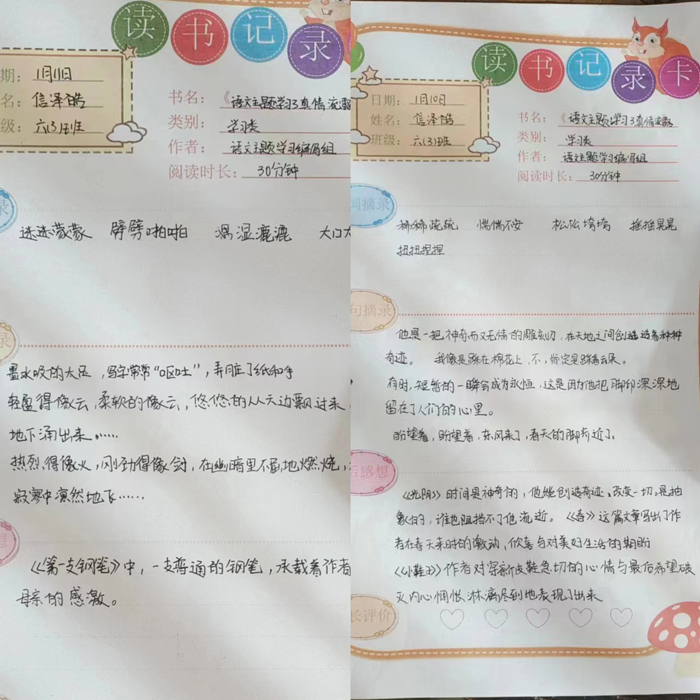 读书记录
期: 1月11日
名: 信泽皓
级: 六(3)班
书名: 《语文主题学习3真情流露
类别: 学习类
作者: 语文主题学习编写组
阅读时长: 30分钟
录
迷迷蒙蒙 劈劈啪啪 湿湿漉漉
录
墨水吸的太足，写字常常“呕吐”，弄脏了纸和手
轻盈得像云，柔软的像云，悠悠的从天边飘过来
地下涌出来……
热烈得像火，刚劲得像剑，在幽暗里不息地燃烧，
寂寥中凛然地飞……
想
《第一支钢笔》中，一支普通的钢笔，承载着作者
母亲的感激。
读书记录卡
日期: 1月10日
姓名: 信泽皓
班级: 六(3)班
书名: 《语文主题学习3真情流露
类别: 学习类
作者: 语文主题学习编写组
阅读时长: 30分钟
词摘录
稀稀疏疏 惴惴不安 松松垮垮 摇摇晃晃
扭扭捏捏
句摘录
他是一把神奇而又无情的雕刻刀，在天地之间创造着种种
奇迹。 我像是踩在棉花上，不，你定是踩着云朵。
有时，短暂的一瞬会成为永恒，这是因为他把脚印深深地
留在了人们的心里。
盼望着，盼望着，东风来了，春天的脚步近了。
后感想
《光阴》时间是神奇的，他能创造奇迹，改变一切，是抽
象的，谁也阻挡不了他流逝。《春》这篇文章写出了作
者在春天来时的激动，欣喜与对美好生活的期盼
《小鞋子》作者对穿新皮鞋急切的心情与最后希望破
灭内心惆怅淋漓尽致地表现了出来
长评价